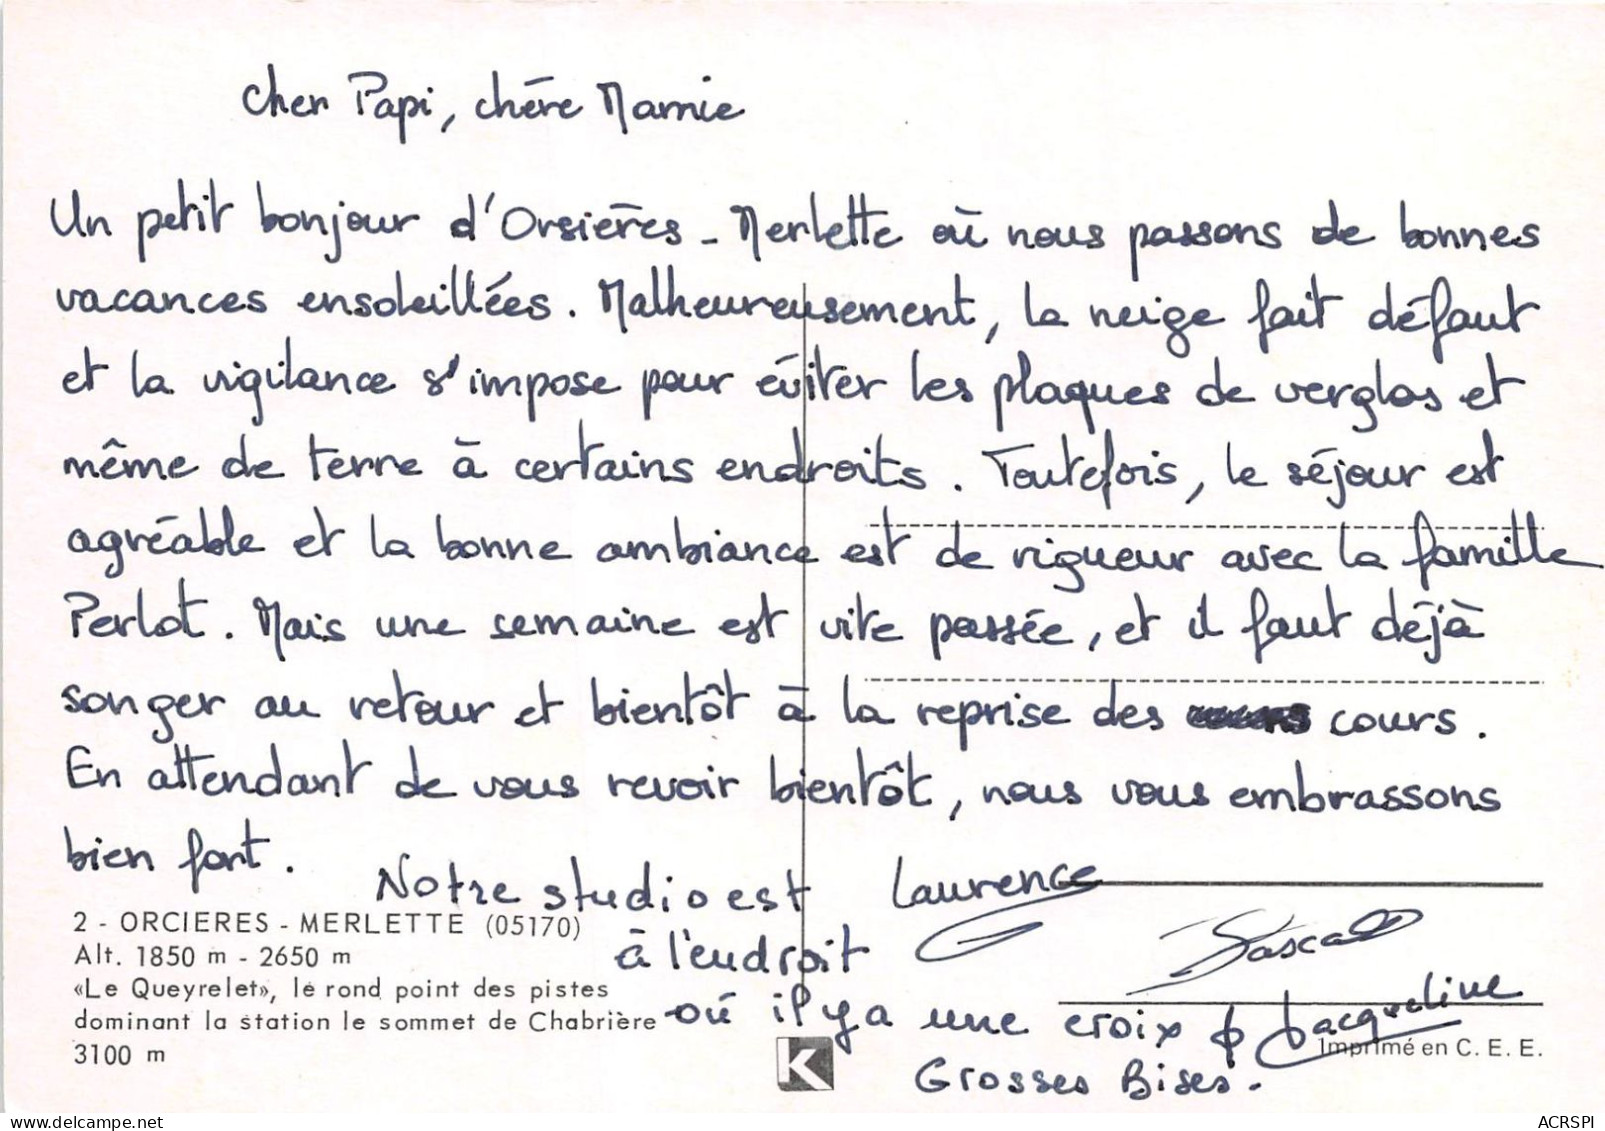 Cher Papi, chère Mamie
Un petit bonjour d'Orsières - Merlette où nous passons de bonnes
vacances ensoleillées. Malheureusement, la neige fait défaut
et la vigilance s'impose pour éviter les plaques de verglas et
même de terre à certains endroits. Toutefois, le séjour est
agréable et la bonne ambiance est de rigueur avec la famille
Perlot. Mais une semaine est vite passée, et il faut déjà
songer au retour et bientôt à la reprise des cours.
En attendant de vous revoir bientôt, nous vous embrassons
bien fort.
Laurence
Pascal
Jacqueline
Notre studio est
à l'endroit
où il y a une croix
Grosses Bises.
2 - ORCIERES - MERLETTE (05170)
Alt. 1850 m - 2650 m
«Le Queyrelet», le rond point des pistes
dominant la station le sommet de Chabrière
3100 m
K
Imprimé en C. E. E.
ACRSPI